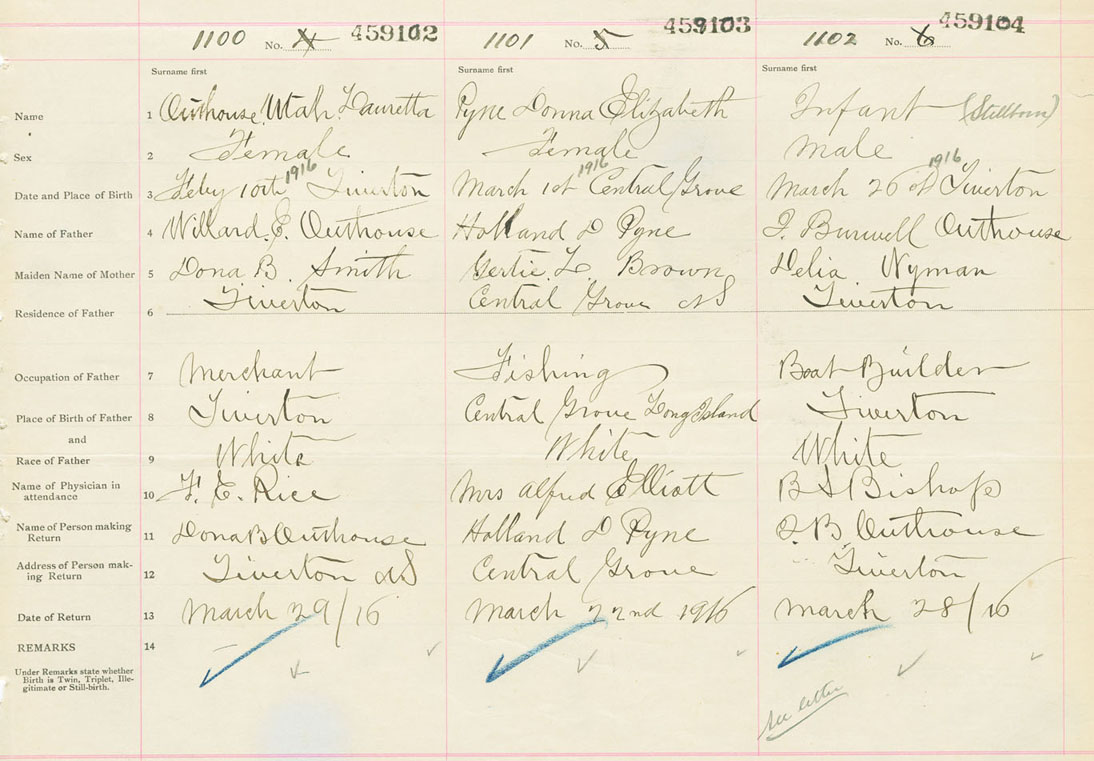 1100 No. 4 459102 1101 No. 5 459103 1102 No. 6 459104
Surname first Surname first Surname first
Name 1 Outhouse, Utah Lauretta Pyne Donna Elizabeth Infant (Stillborn)
Sex 2 Female Female Male
Date and Place of Birth 3 Feby 10th 1916 Tiverton March 1st 1916 Central Grove March 26th 1916 Tiverton
Name of Father 4 Willard. E. Outhouse Holland D Pyne Burwell Outhouse
Maiden Name of Mother 5 Dona B. Smith Gertie. L. Brown Delia Wyman
Residence of Father 6 Tiverton Central Grove NS Tiverton
Occupation of Father 7 Merchant Fishing Boat Builder
Place of Birth of Father 8 Tiverton Central Grove Long Island Tiverton
and
Race of Father 9 White White White
Name of Physician in
attendance 10 F. E. Rice Mrs Alfred Elliott Bishop
Name of Person making
Return 11 Dona B Outhouse Holland D Pyne B Outhouse
Address of Person mak-
ing Return 12 Tiverton NS Central Grove Tiverton
Date of Return 13 March 29/16 March 22nd 1916 March 28/16
REMARKS 14
Under Remarks state whether
Birth is Twin, Triplet, Ille-
gitimate or Still-birth.
see letter